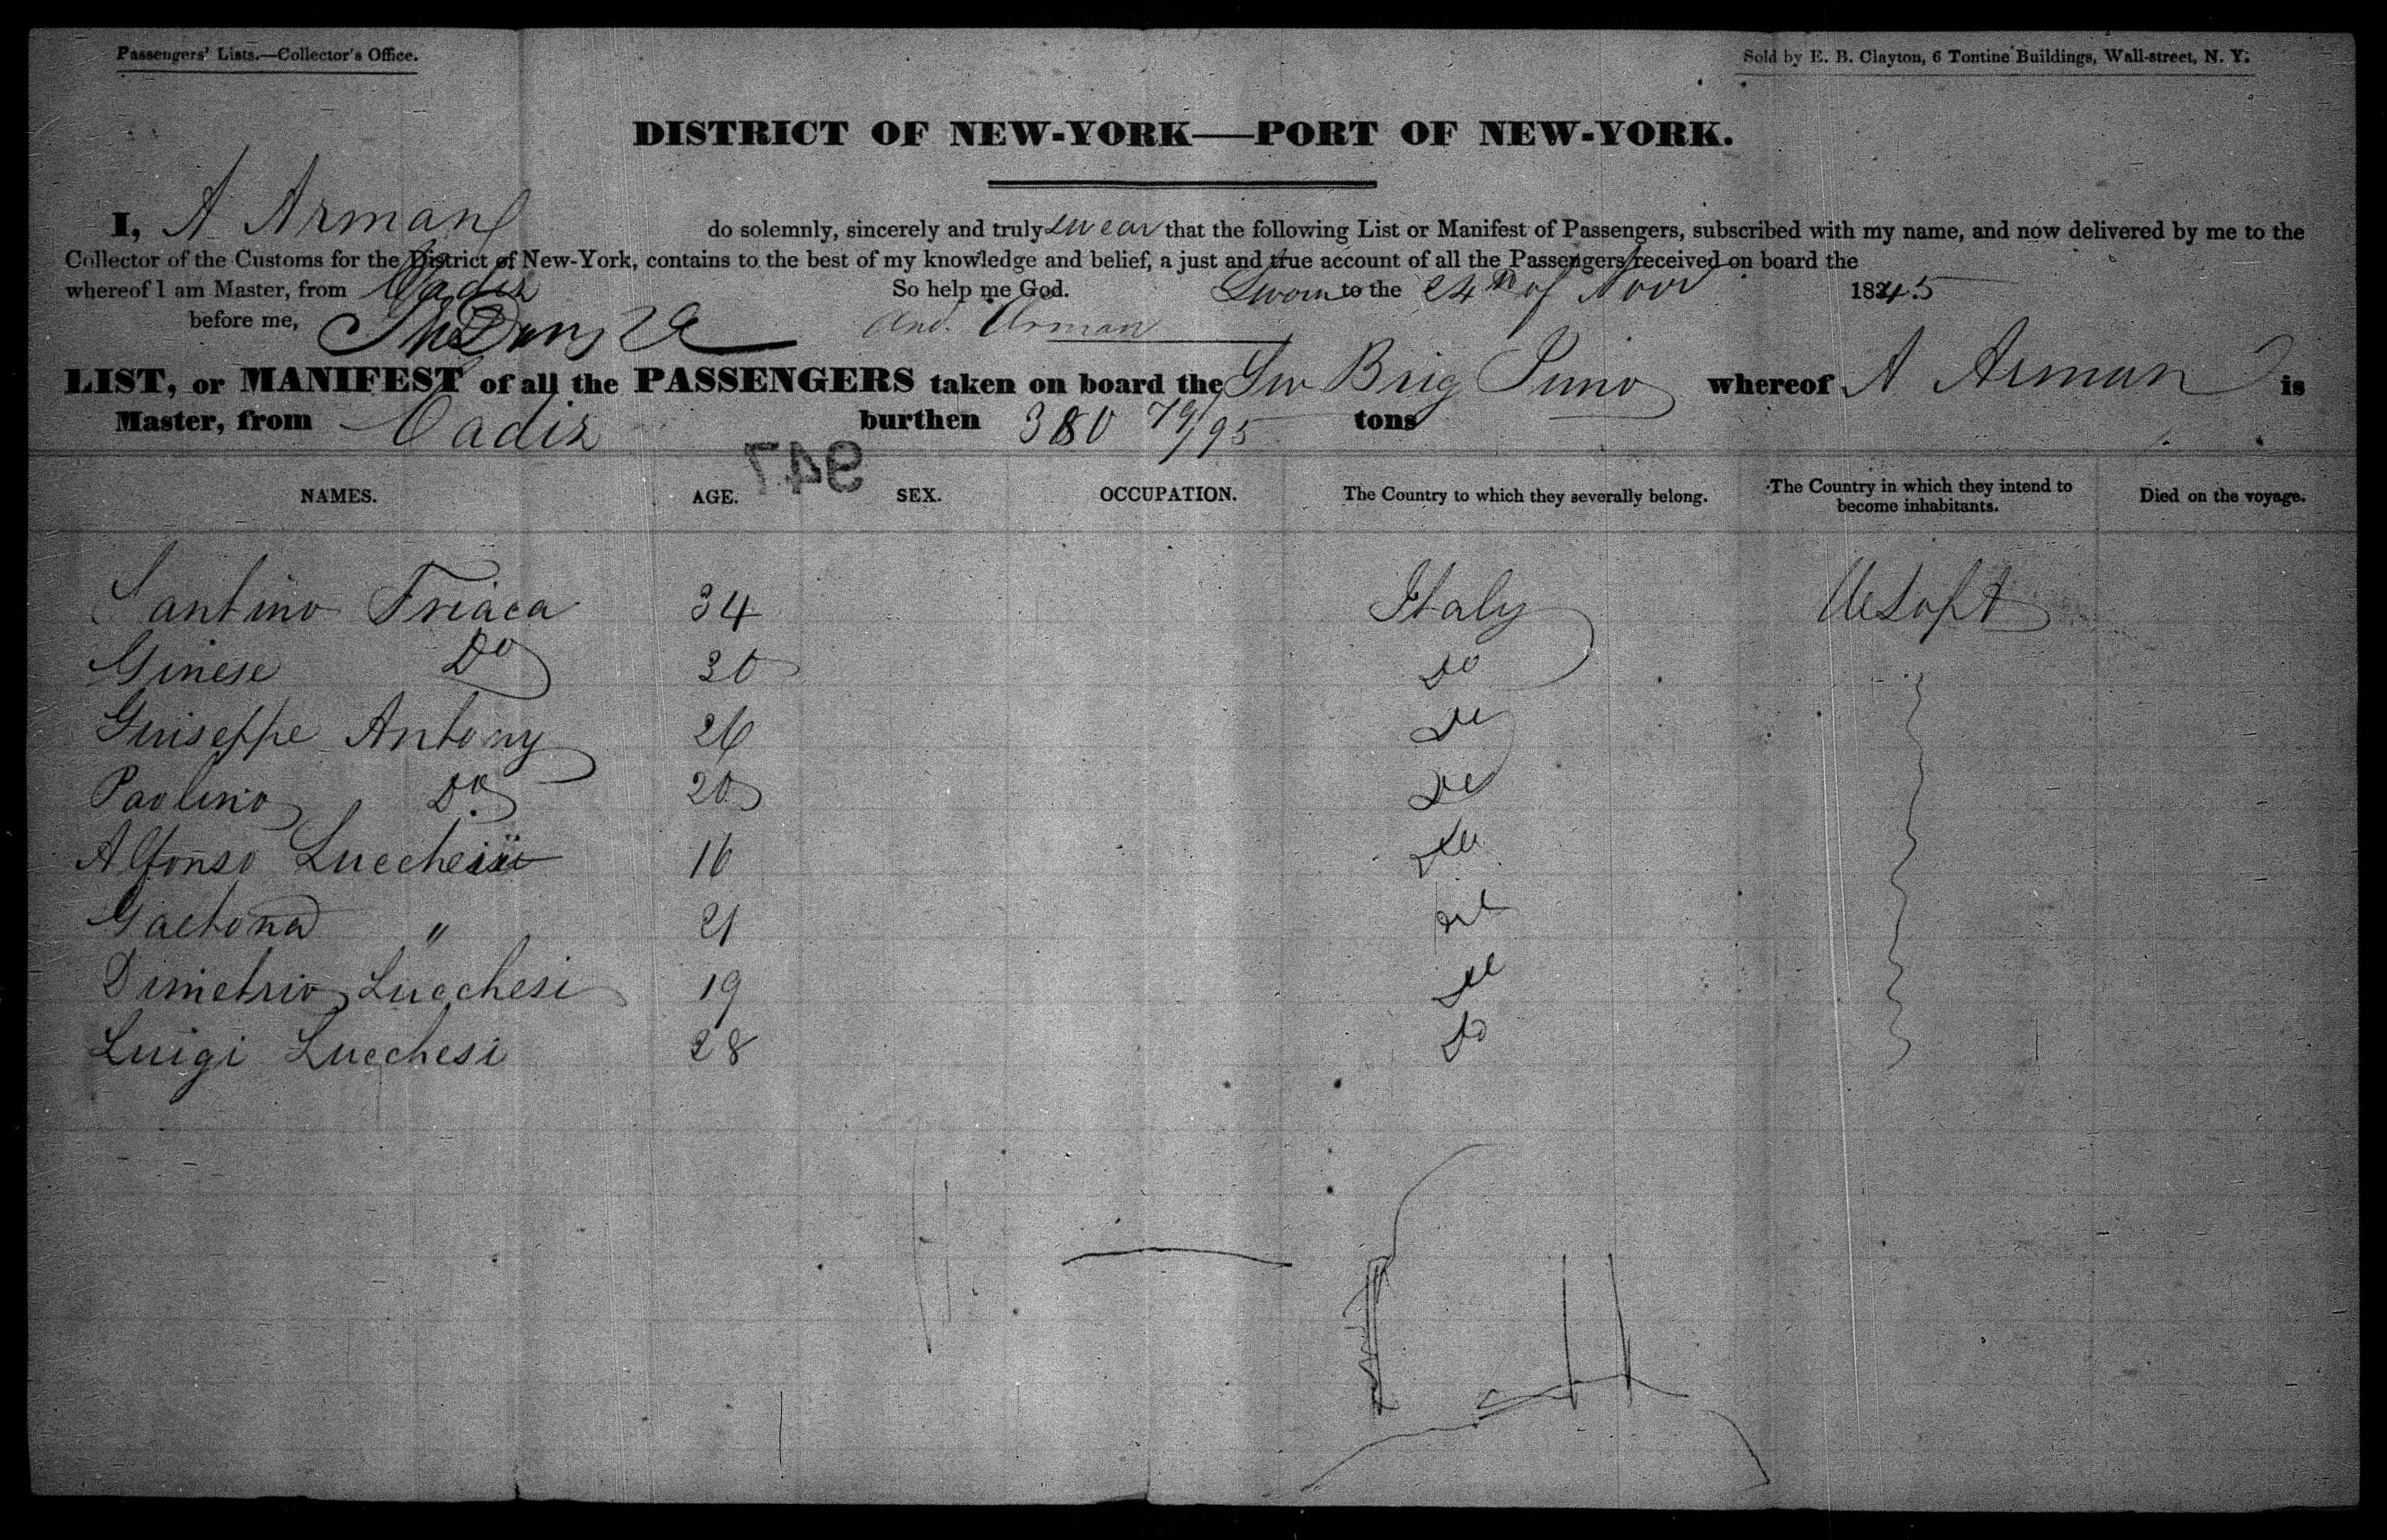 Passengers' Lists.—Collector's Office.
Sold by E. B. Clayton, 6 Tontine Buildings, Wall-street, N. Y.
DISTRICT OF NEW-YORK—PORT OF NEW-YORK.
I, A Arman do solemnly, sincerely and truly swear that the following List or Manifest of Passengers, subscribed with my name, and now delivered by me to the
Collector of the Customs for the District of New-York, contains to the best of my knowledge and belief, a just and true account of all the Passengers received on board the
whereof I am Master, from Cadiz So help me God. Sworn to the 24th of Novr 1845
before me, And. Arman
LIST, or MANIFEST of all the PASSENGERS taken on board the Sw Brig Juno whereof A Arman is
Master, from Cadiz burthen 380 79/95 tons
947
NAMES. AGE. SEX. OCCUPATION. The Country to which they severally belong. The Country in which they intend to become inhabitants. Died on the voyage.
Santino Friaca 34 Italy U S of A
Ginese Do 30 Do
Guiseppe Antony 26 Do
Paolino Do 20 Do
Alfonso Lucchesi 16 Do
Gaetona " 21 Do
Dimetrio Lucchesi 19 Do
Luigi Lucchesi 28 Do